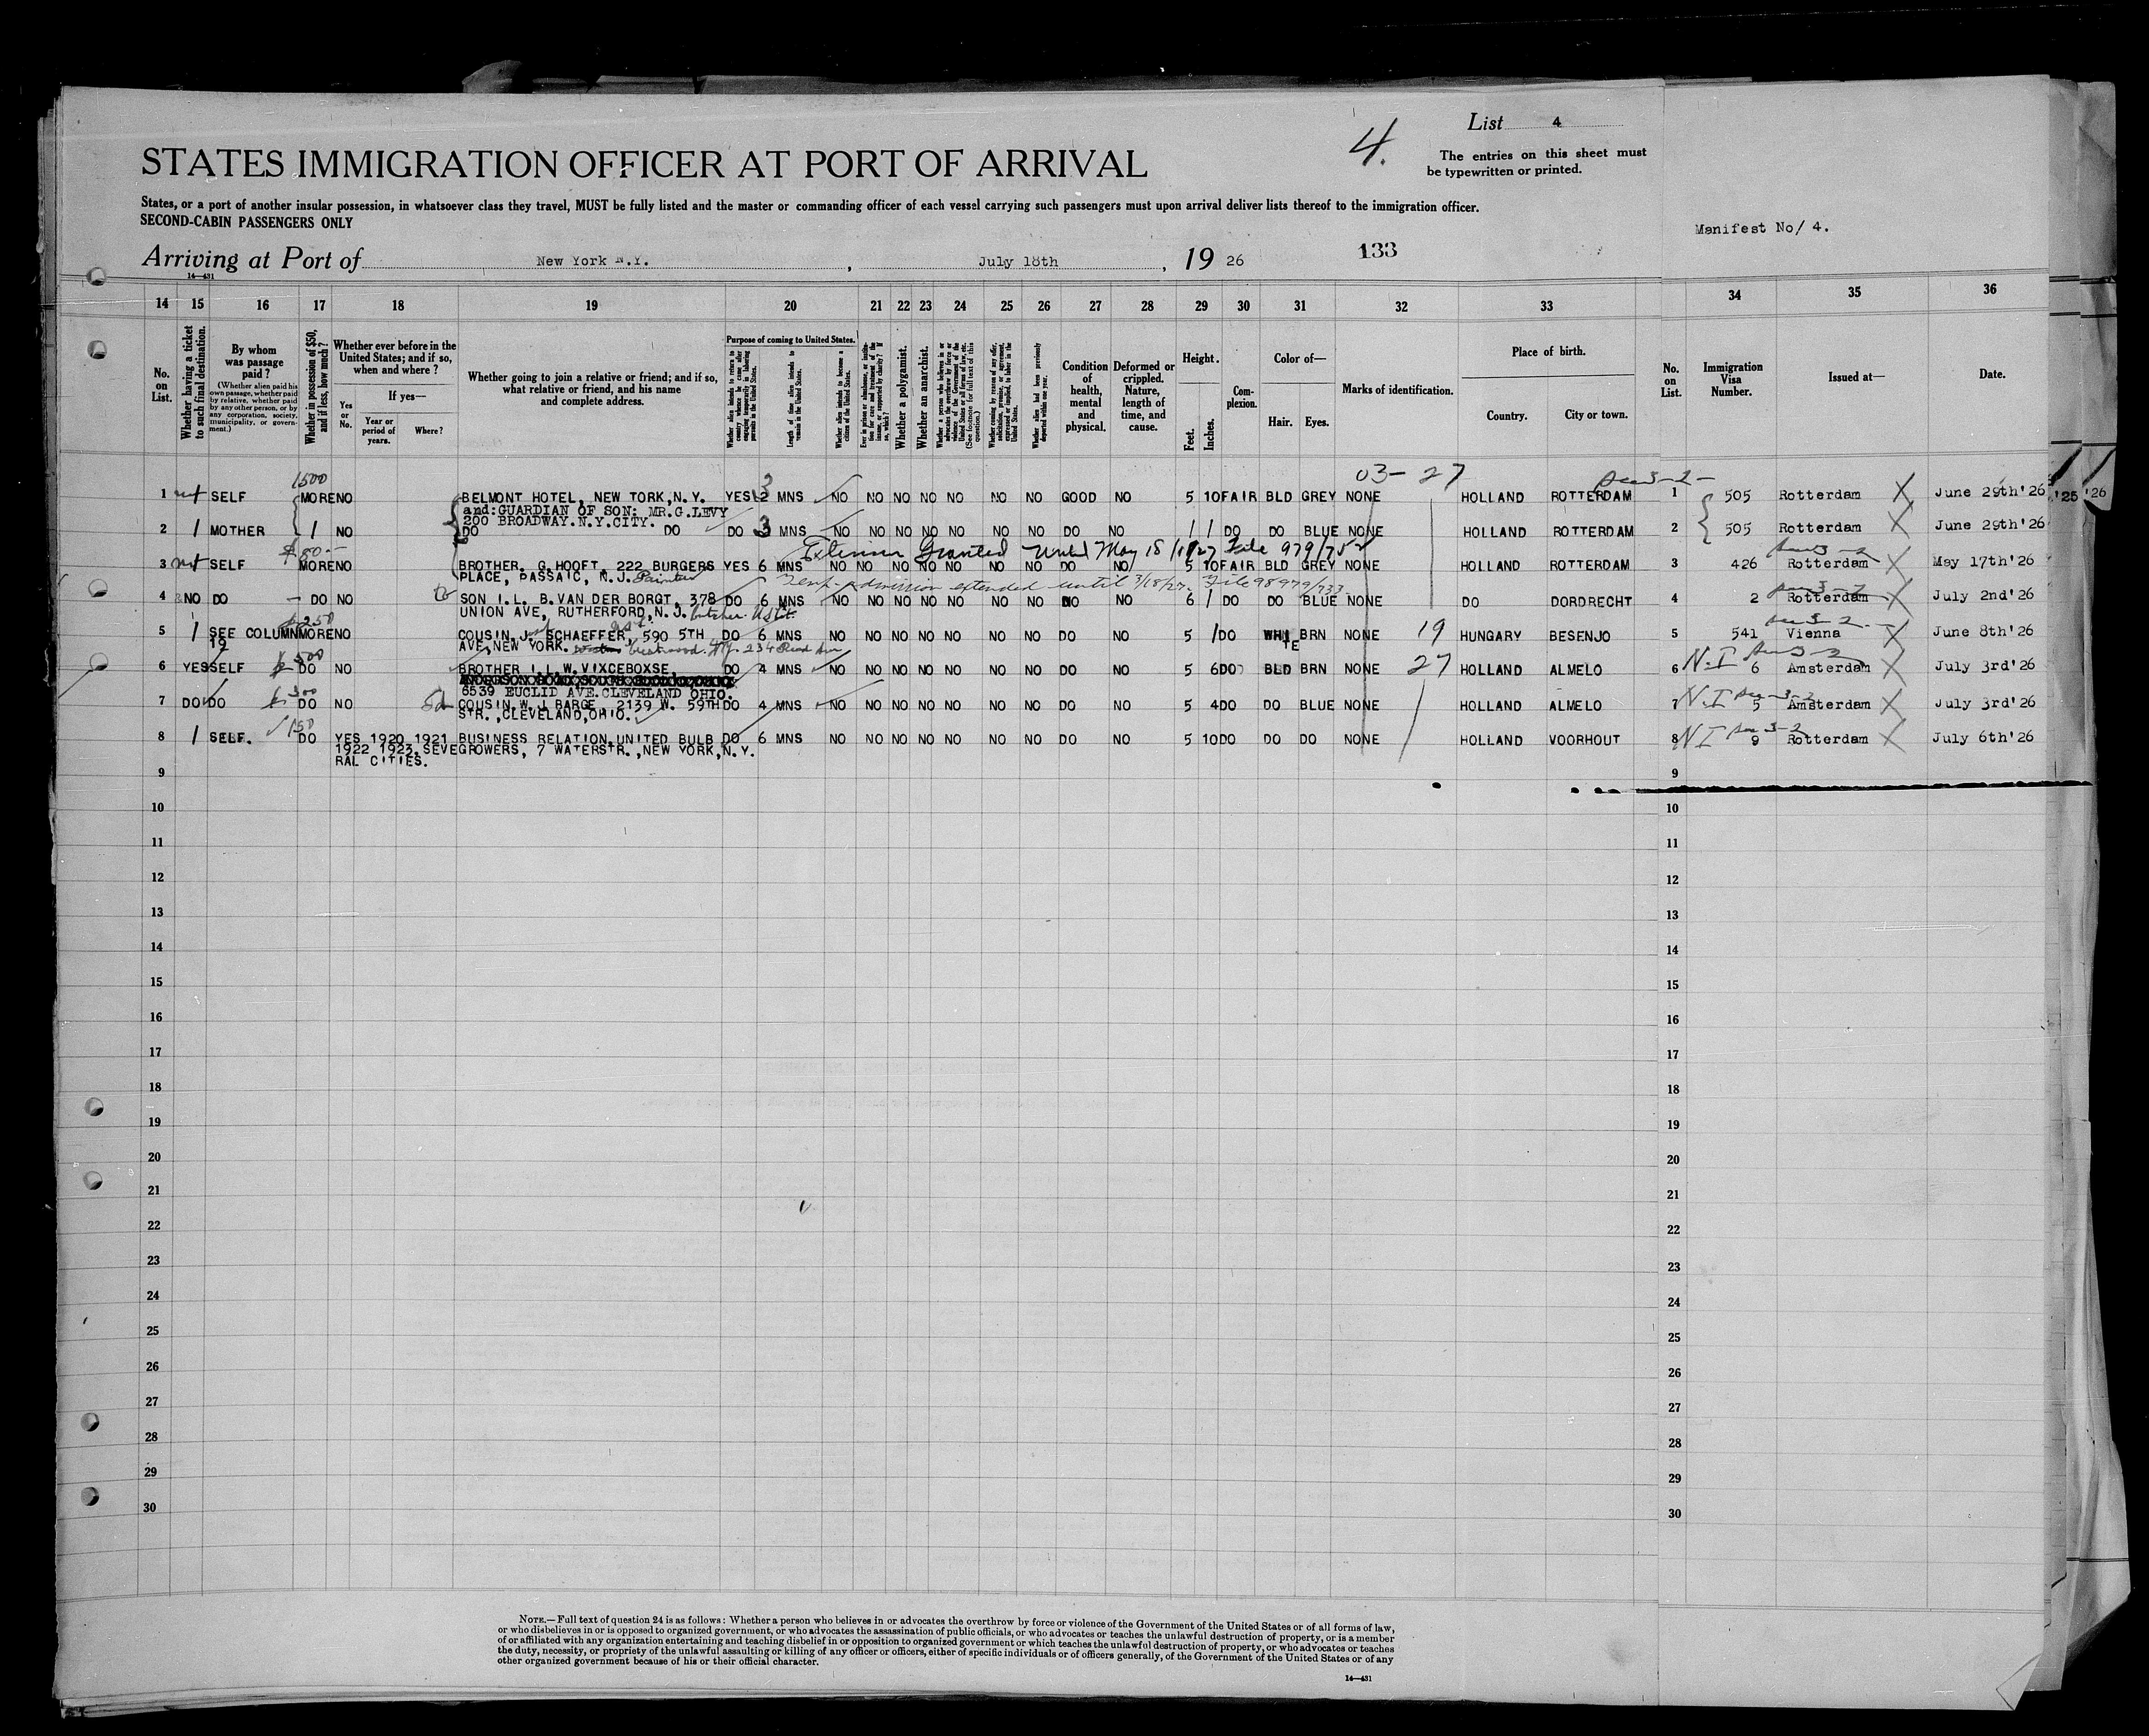 List 4
4.
The entries on this sheet must
be typewritten or printed.
STATES IMMIGRATION OFFICER AT PORT OF ARRIVAL
States, or a port of another insular possession, in whatsoever class they travel, MUST be fully listed and the master or commanding officer of each vessel carrying such passengers must upon arrival deliver lists thereof to the immigration officer.
SECOND-CABIN PASSENGERS ONLY
Manifest No/ 4.
Arriving at Port of New York N.Y. , July 18th , 19 26 133
14—431
14 15 16 17 18 19 20 21 22 23 24 25 26 27 28 29 30 31 32 33 34 35 36
No. on List.
Whether having a ticket to such final destination.
By whom was passage paid?
(Whether alien paid his own passage, whether paid by relative, whether paid by any other person, or by any corporation, society, municipality, or government.)
Whether in possession of $50, and if less, how much?
Whether ever before in the United States; and if so, when and where?
Yes or No.
If yes—
Year or period of years.
Where?
Whether going to join a relative or friend; and if so, what relative or friend, and his name and complete address.
Purpose of coming to United States.
Length of time alien intends to remain in the United States.
Whether alien intends to become a citizen of the United States.
Whether a polygamist.
Whether an anarchist.
Condition of health, mental and physical.
Deformed or crippled. Nature, length of time, and cause.
Height.
Feet. Inches.
Complexion.
Color of—
Hair. Eyes.
Marks of identification.
Place of birth.
Country. City or town.
No. on List.
Immigration Visa Number.
Issued at—
Date.
1500 03- 27
1 SELF MORE NO BELMONT HOTEL, NEW YORK, N.Y. YES 2 3 MNS NO NO NO NO NO NO NO GOOD NO 5 10 FAIR BLD GREY NONE HOLLAND ROTTERDAM 1 505 Rotterdam X June 29th'26 '25 '26
and: GUARDIAN OF SON: MR.G.LEVY
200 BROADWAY.N.Y.CITY.
2 / MOTHER / NO DO DO DO 3 MNS NO NO NO NO NO NO NO DO NO / / DO DO BLUE NONE HOLLAND ROTTERDAM 2 505 Rotterdam X June 29th'26
Extension Granted Until May 18/1927 File 979/752
3 SELF MORE NO BROTHER. G.HOOFT, 222 BURGERS YES 6 MNS NO NO NO NO NO NO NO DO NO 5 10 FAIR BLD GREY NONE HOLLAND ROTTERDAM 3 426 Rotterdam X May 17th'26
PLACE, PASSAIC, N.J. Painter
Temp. admission extended until 3/18/27. File 98979/733
4 NO DO — DO NO SON I.L. B.VAN DER BORGT, 378 DO 6 MNS NO NO NO NO NO NO NO NO 6 / DO DO BLUE NONE DO DORDRECHT 4 2 Rotterdam X July 2nd'26
UNION AVE, RUTHERFORD, N.J.
$250
5 / SEE COLUMN MORE NO COUSIN J. SCHAEFFER, 590 5TH DO 6 MNS NO NO NO NO NO NO NO DO NO 5 / DO WHITE BRN NONE 19 HUNGARY BESENJO 5 541 Vienna X June 8th'26
19 AVE, NEW YORK.
500
6 YES SELF DO NO BROTHER I.L.W.VIXCEBOXSE, DO 4 MNS NO NO NO NO NO NO NO DO NO 5 6 DO BLD BRN NONE 27 HOLLAND ALMELO 6 N.I 6 Amsterdam X July 3rd'26
6539 EUCLID AVE.CLEVELAND OHIO.
300
7 DO DO DO NO COUSIN W.J BARGE, 2139 W. 59TH DO 4 MNS NO NO NO NO NO NO NO DO NO 5 4 DO DO BLUE NONE HOLLAND ALMELO 7 N.I 5 Amsterdam X July 3rd'26
STR.,CLEVELAND,OHIO.
150
8 / SELF. DO YES 1920 1921 BUSINESS RELATION UNITED BULB DO 6 MNS NO NO NO NO NO NO NO DO NO 5 10 DO DO DO NONE HOLLAND VOORHOUT 8 N I 9 Rotterdam X July 6th'26
1922 1923,SEVE GROWERS, 7 WATERSTR.,NEW YORK,N.Y.
RAL CITIES.
9 9
10 10
11 11
12 12
13 13
14 14
15 15
16 16
17 17
18 18
19 19
20 20
21 21
22 22
23 23
24 24
25 25
26 26
27 27
28 28
29 29
30 30
NOTE.—Full text of question 24 is as follows: Whether a person who believes in or advocates the overthrow by force or violence of the Government of the United States or of all forms of law,
or who disbelieves in or is opposed to organized government, or who advocates the assassination of public officials, or who advocates or teaches the unlawful destruction of property, or is a member
of or affiliated with any organization entertaining and teaching disbelief in or opposition to organized government or which teaches the unlawful destruction of property, or who advocates or teaches
the duty, necessity, or propriety of the unlawful assaulting or killing of any officer or officers, either of specific individuals or of officers generally, of the Government of the United States or of any
other organized government because of his or their official character.
14—431